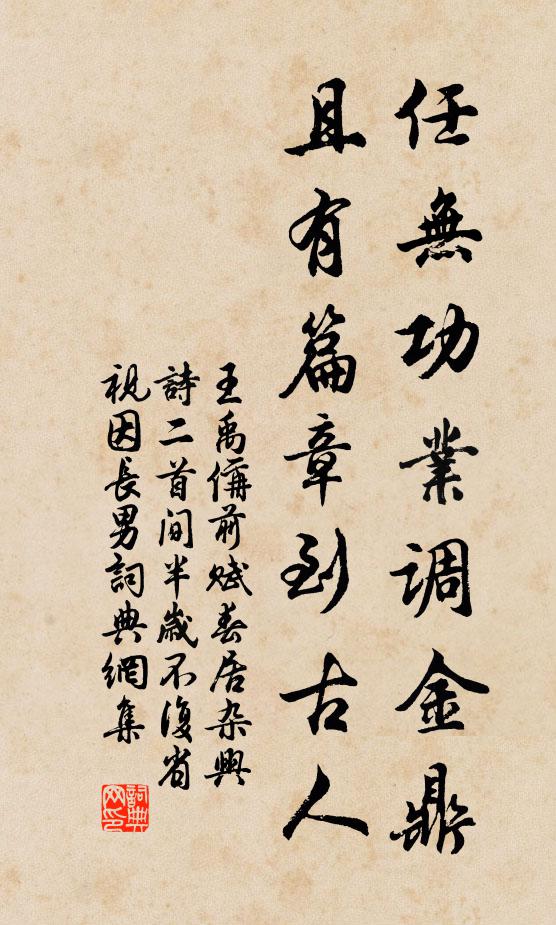 任無功業調金鼎
且有篇章到古人
王禹偁前賦春居杂興
詩二首间半歲不復省
視因長男詞典網集
詞典网印